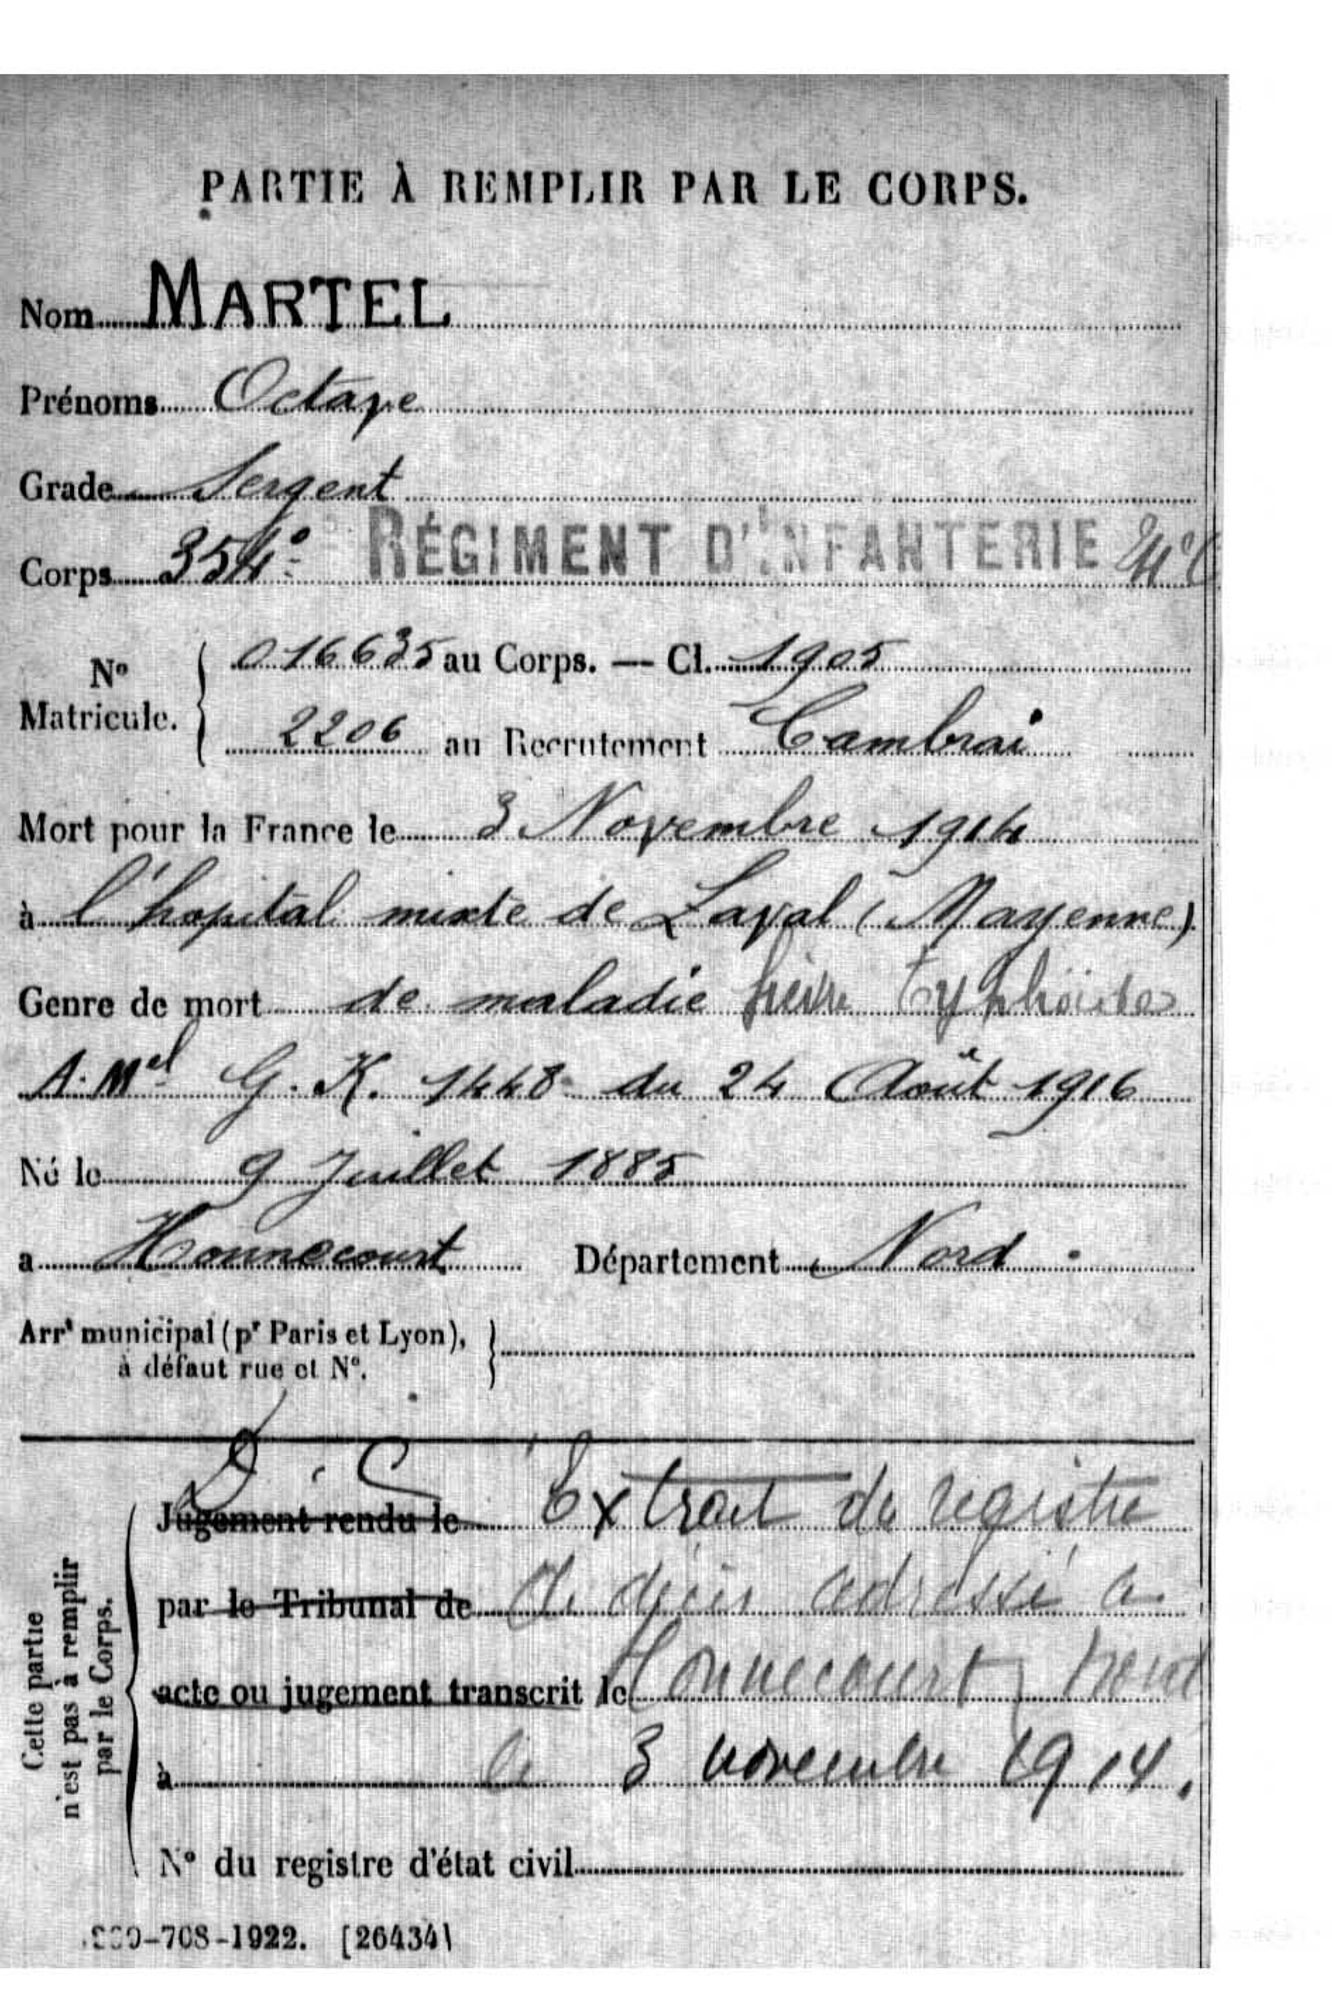 PARTIE À REMPLIR PAR LE CORPS.
Nom MARTEL
Prénoms Octave
Grade Sergent
Corps 354e RÉGIMENT D'INFANTERIE 24e C
No Matricule. 016635 au Corps. — Cl. 1905
2206 au Recrutement Cambrai
Mort pour la France le 3 Novembre 1914
à l'hopital mixte de Laval (Mayenne)
Genre de mort de maladie fièvre typhoïde
A. Mel G. K. 1448 du 24 Août 1916
Né le 9 Juillet 1885
a Honnecourt Département Nord
Arrt municipal (pr Paris et Lyon),
à défaut rue et No.
D. C
Cette partie n'est pas à remplir par le Corps.
Jugement rendu le Extrait du registre
par le Tribunal de de décès adressé a
acte ou jugement transcrit le Honnecourt, nord
à le 3 novembre 1914.
No du registre d'état civil
-708-1922. [26434]